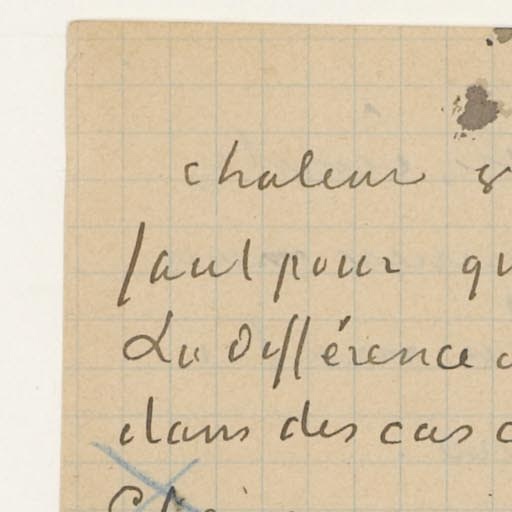 chaleur
faut pour qu
La différence
dans des cas